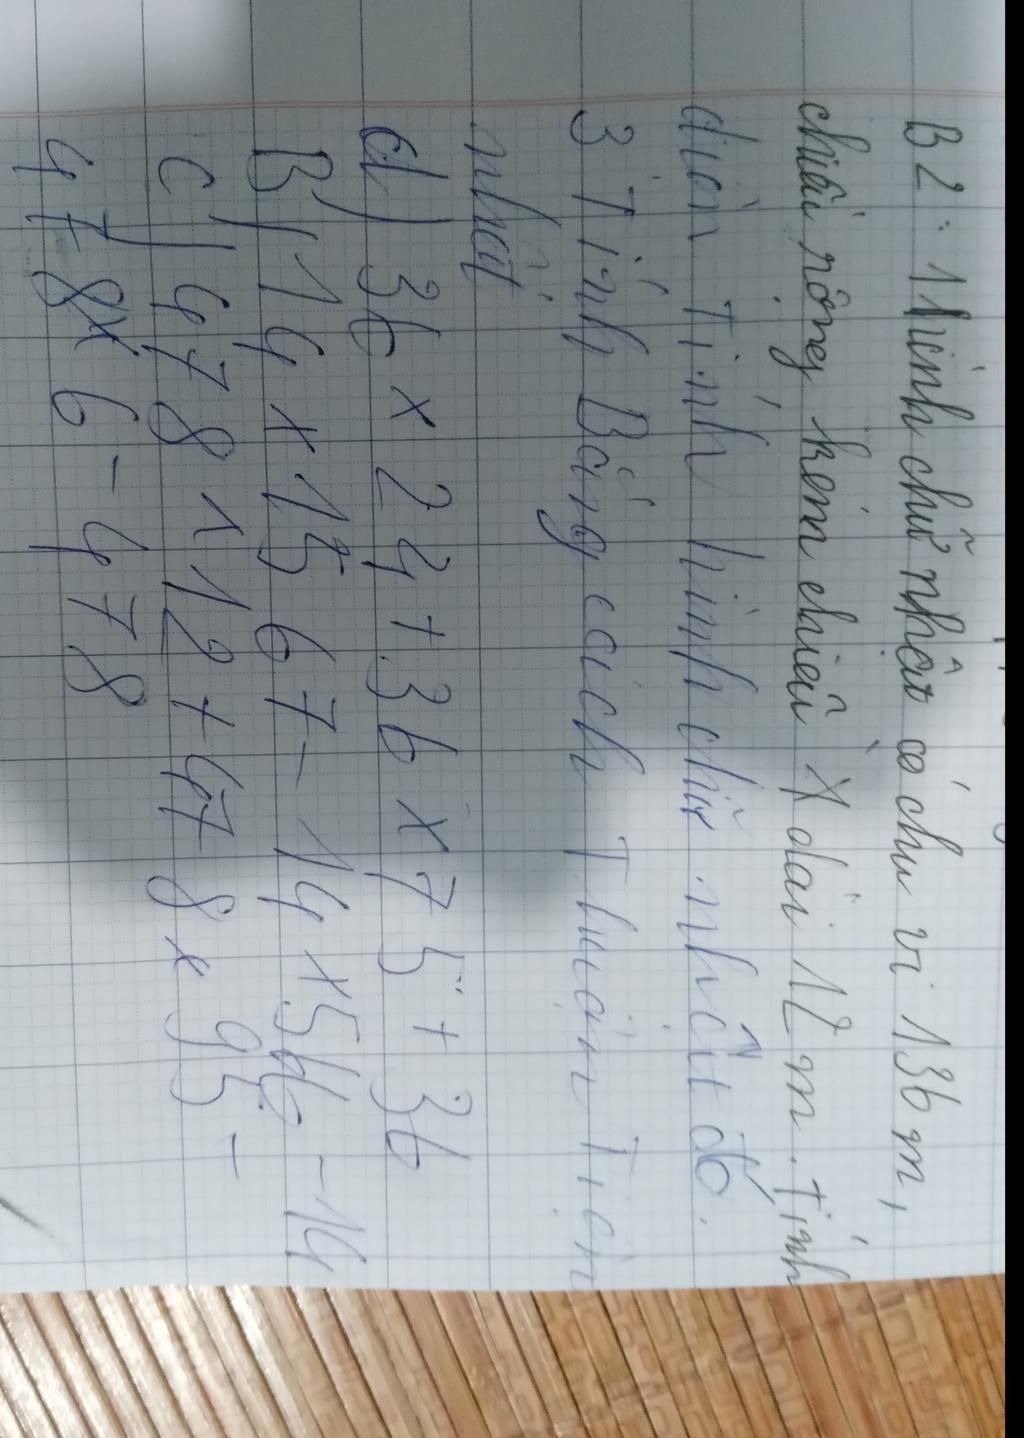 B2: 1 hình chữ nhật có chu vi 136 m,
chiều rộng kém chiều X dài 12 m. Tính
diện Tính hình chữ nhật đó.
3 Tính Bằng cách Thuận Tiện
nhất
a) 36 x 24 + 36 x 75 + 36
B) 14 x 1567 - 14 x 566 - 14
c) 478 x 12 + 478 x 95 -
478 x 6 - 478